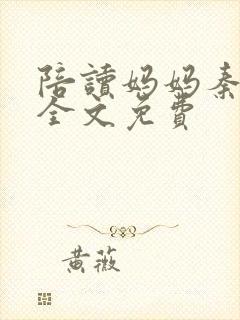 陪讀媽媽秦
全文免費
黃薇